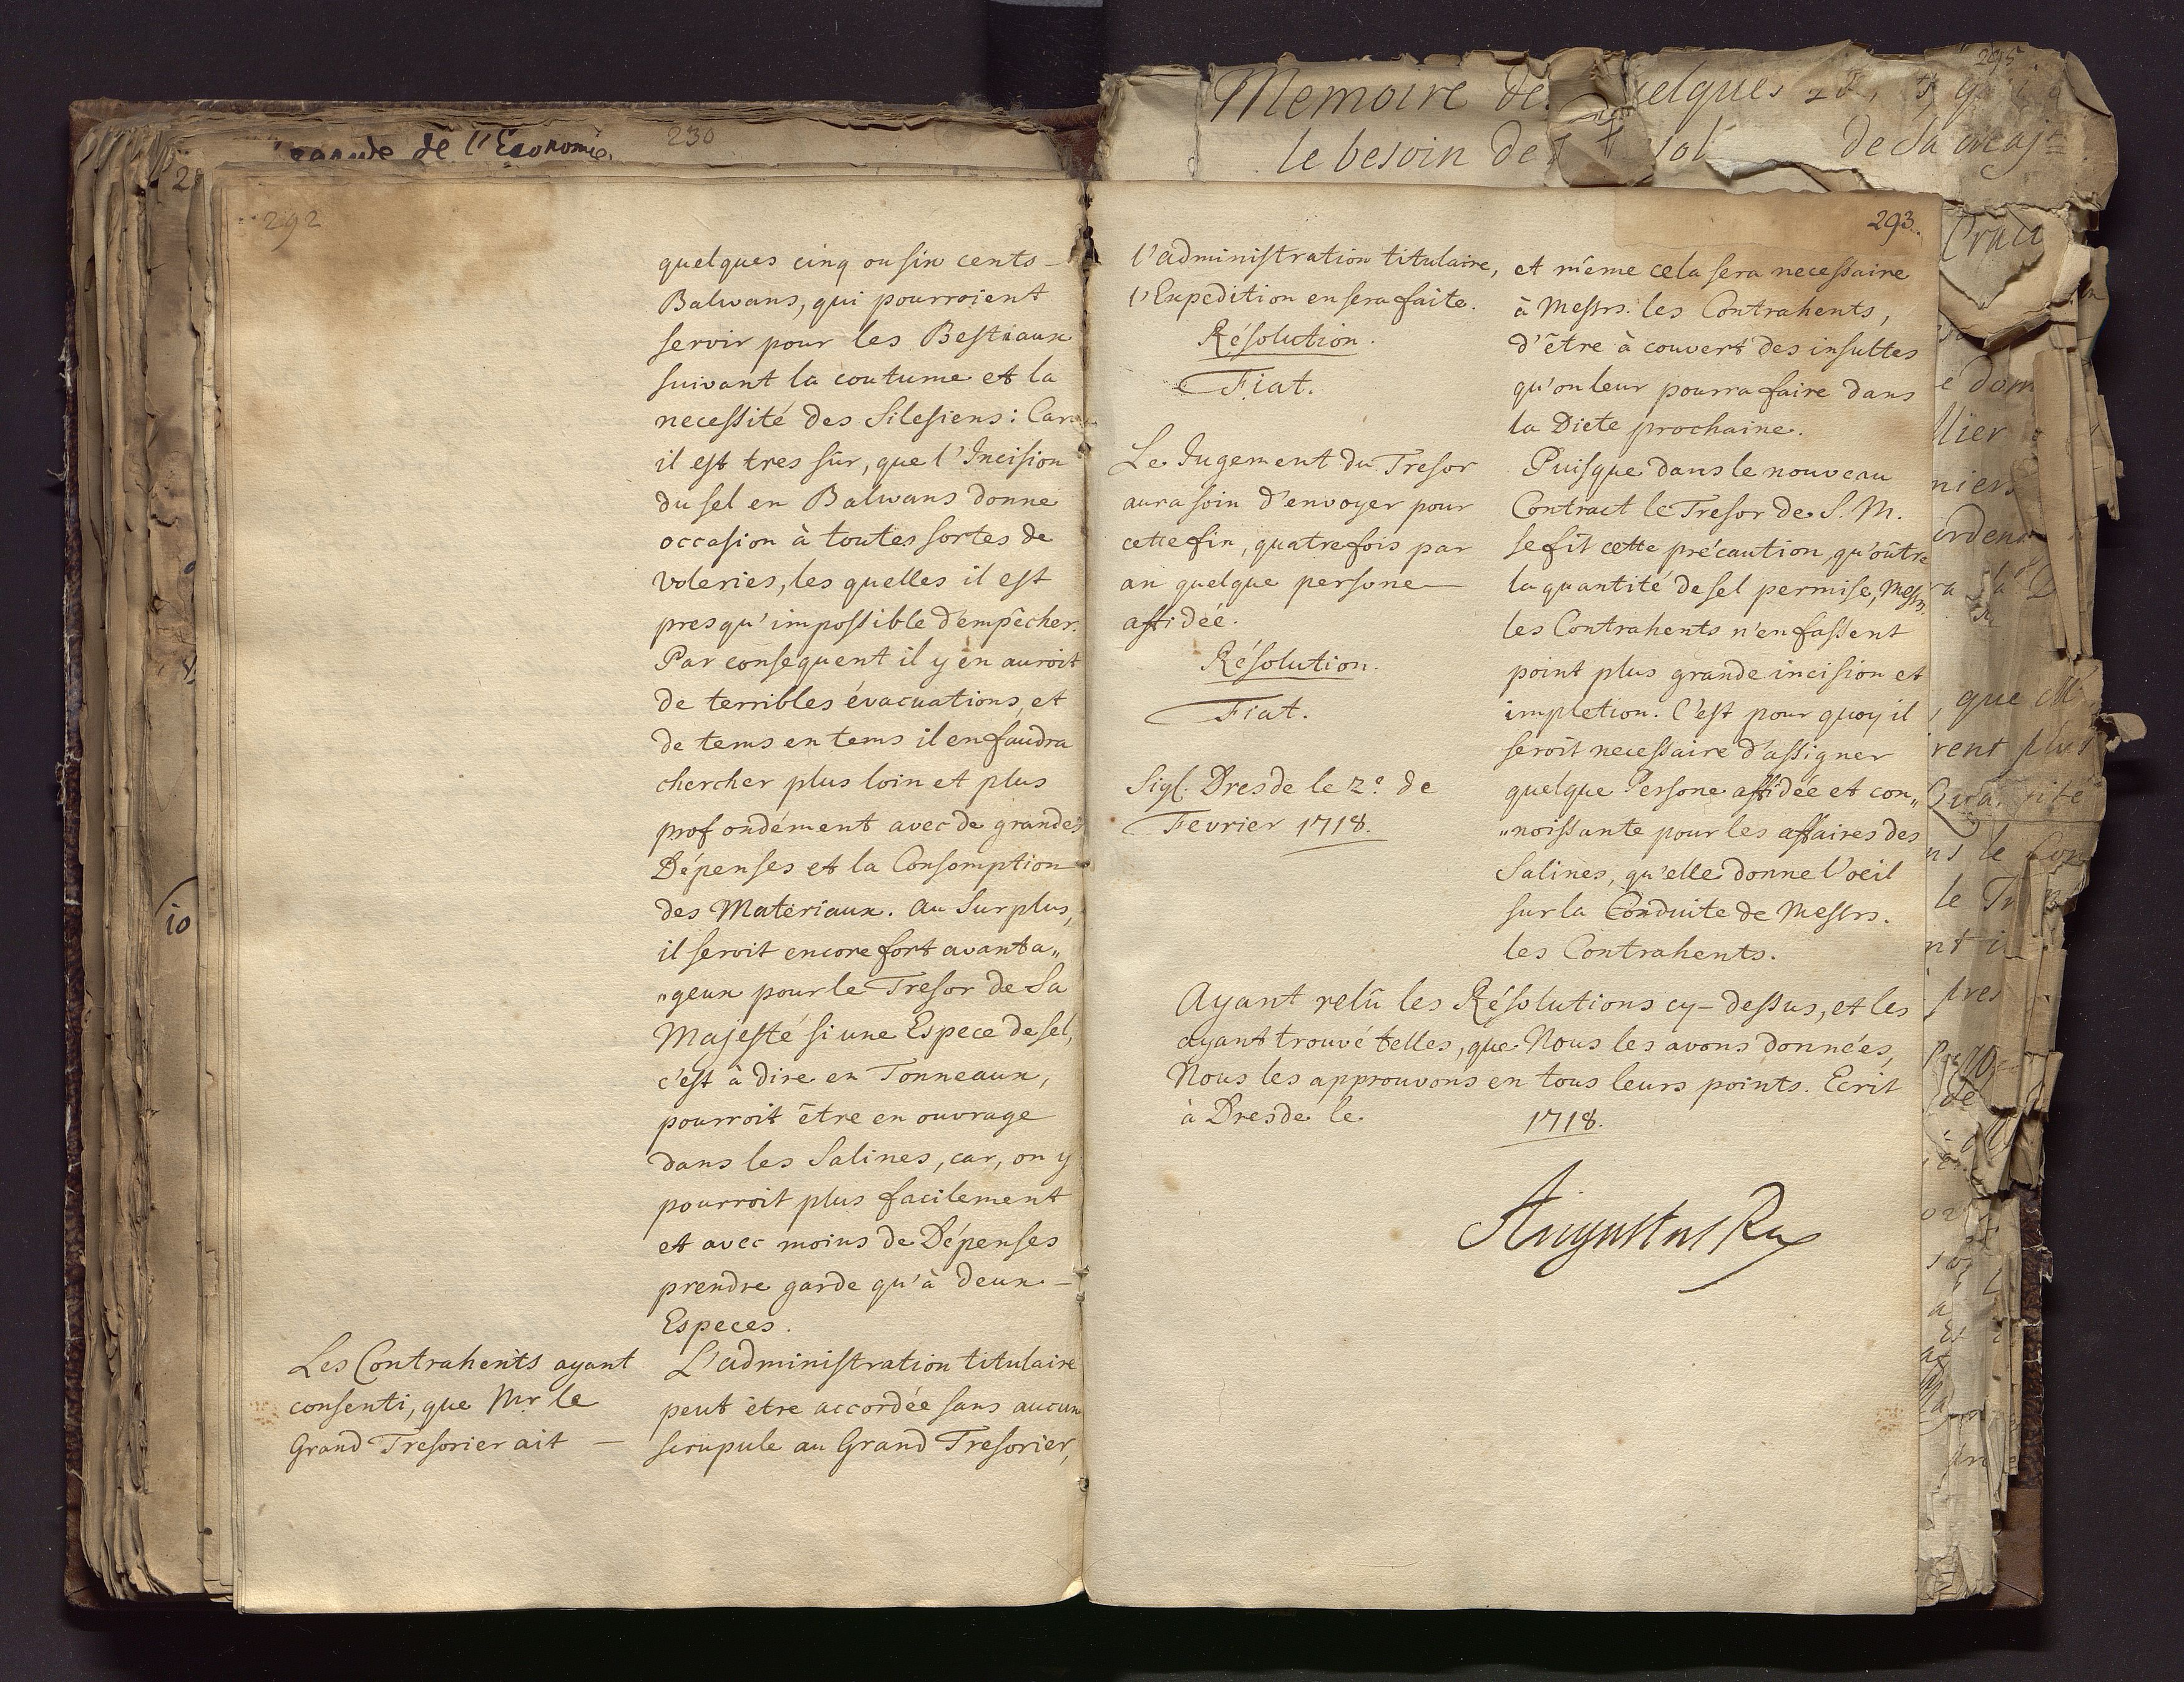 rande de l'Economie.
230
292
quelques cinq ou six cents
Balwans, qui pourroient
servir pour les Bestiaux
suivant la coutume et la
necessité des Silesiens: Car
il est tres sûr, que l'Incision
du sel en Balwans donne
occasion à toutes sortes de
voleries, les quelles il est
presqu'impossible d'empêcher.
Par consequent il y en auroit
de terribles évacuations, et
de tems en tems il en faudra
chercher plus loin et plus
profondément avec de grandes
Dépenses et la Consomption
des Matériaux. Au Surplus,
il seroit encore fort avanta„
„geux pour le Tresor de Sa
Majesté si une Espece de sel,
c'est à dire en Tonneaux,
pourroit être en ouvrage
dans les Salines, car, on y
pourroit plus facilement
et avec moins de Dépenses
prendre garde qu'à deux
Especes.
Les Contrahents ayant
consenti, que Mr le
Grand Tresorier ait
L'administration titulaire
peut être accordée sans aucun
scrupule au Grand Tresorier,
295
Memoire de elques
le besoin de de Sa Majte
293.
l'administration titulaire,
l'Expedition en sera faite.
Résolution.
Fiat.
Le Jugement du Tresor
aura soin d'envoyer pour
cette fin, quatre fois par
an quelque persone
affidée.
Résolution.
Fiat.
Sigl. Dresde le 2.º de
Fevrier 1718.
et même cela sera necessaire
à Messrs. les Contrahents,
d'être à couvert des insultes
qu'on leur pourra faire dans
la Diete prochaine.
Puisque dans le nouveau
Contract le Tresor de S. M.
se fit cette précaution, qu'oûtre
la quantité de sel permise, Messrs.
les Contrahents n'en fassent
point plus grande incision et
impletion. C'est pour quoy il
seroit necessaire d'assigner
quelque Persone affidée et con„
„noissante pour les affaires des
Salines, qu'elle donne l'oeil
sur la Conduite de Messrs.
les Contrahents.
Ayant relû les Résolutions cy-dessus, et les
ayant trouvé telles, que Nous les avons données,
Nous les approuvons en tous leurs points. Ecrit
à Dresde le 1718.
Augustus Rex